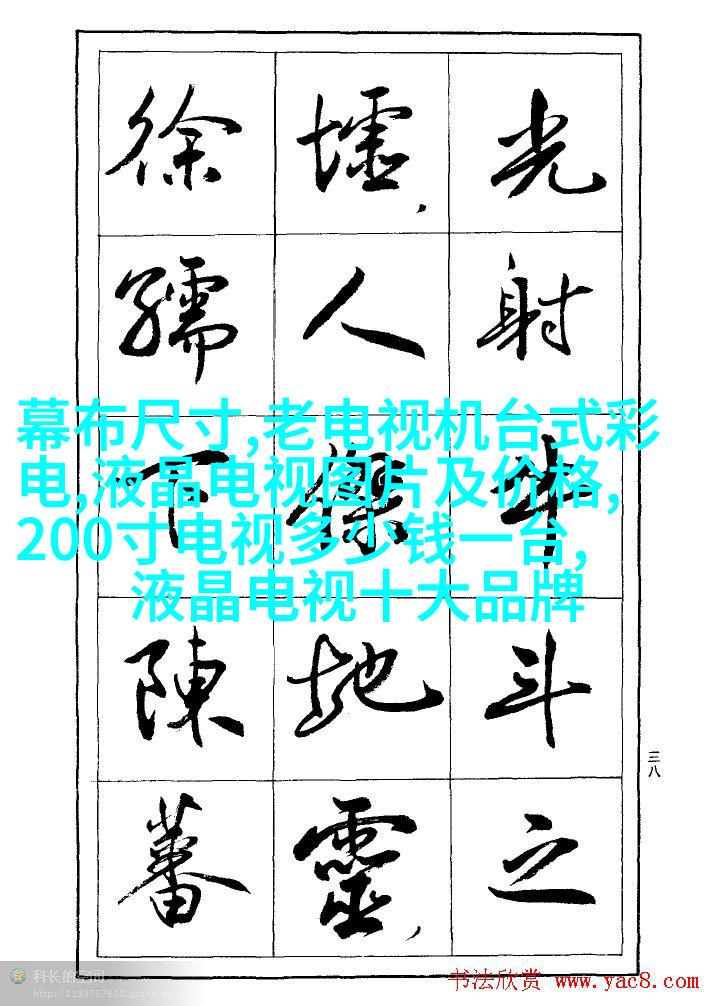 光射牛斗之
墟,人傑地靈,
徐孺下陳蕃
三八
幕布尺寸,老电视机台式彩
电,液晶电视图片及价格,
200寸电视多少钱一台,
液晶电视十大品牌
科长的空间
http://1193767618.qzone.qq.com
书法欣赏 www.yac8.com